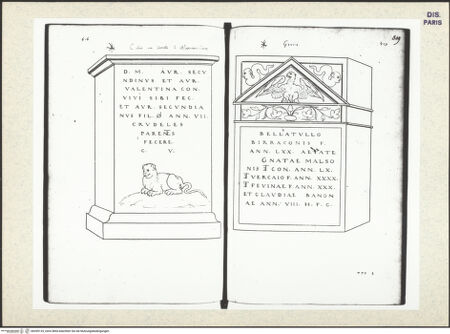 DIS.
PARIS
D. M. AVR. SECV
NDINVS ET AVR
VALENTINA CON
VIVI SIBI FEC.
ET AVR SECVNDIA
NVS FIL. ANN. VII.
CRVDELES
PARENTS
FECERE
C. V.
309
BELLATVLLO
BIRRACONIS F.
ANN. LXX. AETATE
GNATAE MALSO
NIS CON. ANN. LX.
VERCAIO F. ANN. XXXX.
PEVINAE F. ANN. XXX.
ET CLAVDIAE BANON
AE ANN. VIII. H. F. C.